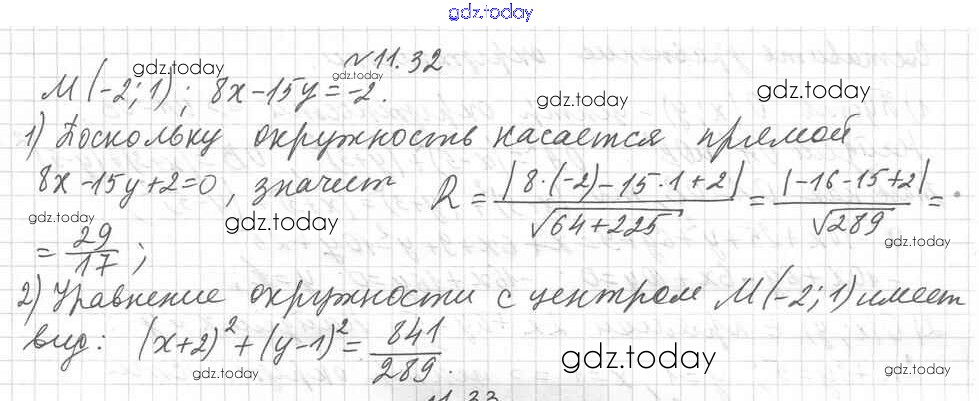 gdz.today
№11.32
gdz.today gdz.today
M(-2;1); 8x-15y=-2.
gdz.today gdz.today
1) Поскольку окружность касается прямой
8x-15y+2=0, значит R = |8·(-2)-15·1+2| / √64+225 = |-16-15+2| / √289 =
gdz.today gdz.today gdz.today
= 29/17;
2) Уравнение окружности с центром M(-2;1) имеет
вид: (x+2)²+(y-1)²= 841/289.
gdz.today gdz.today
11.33